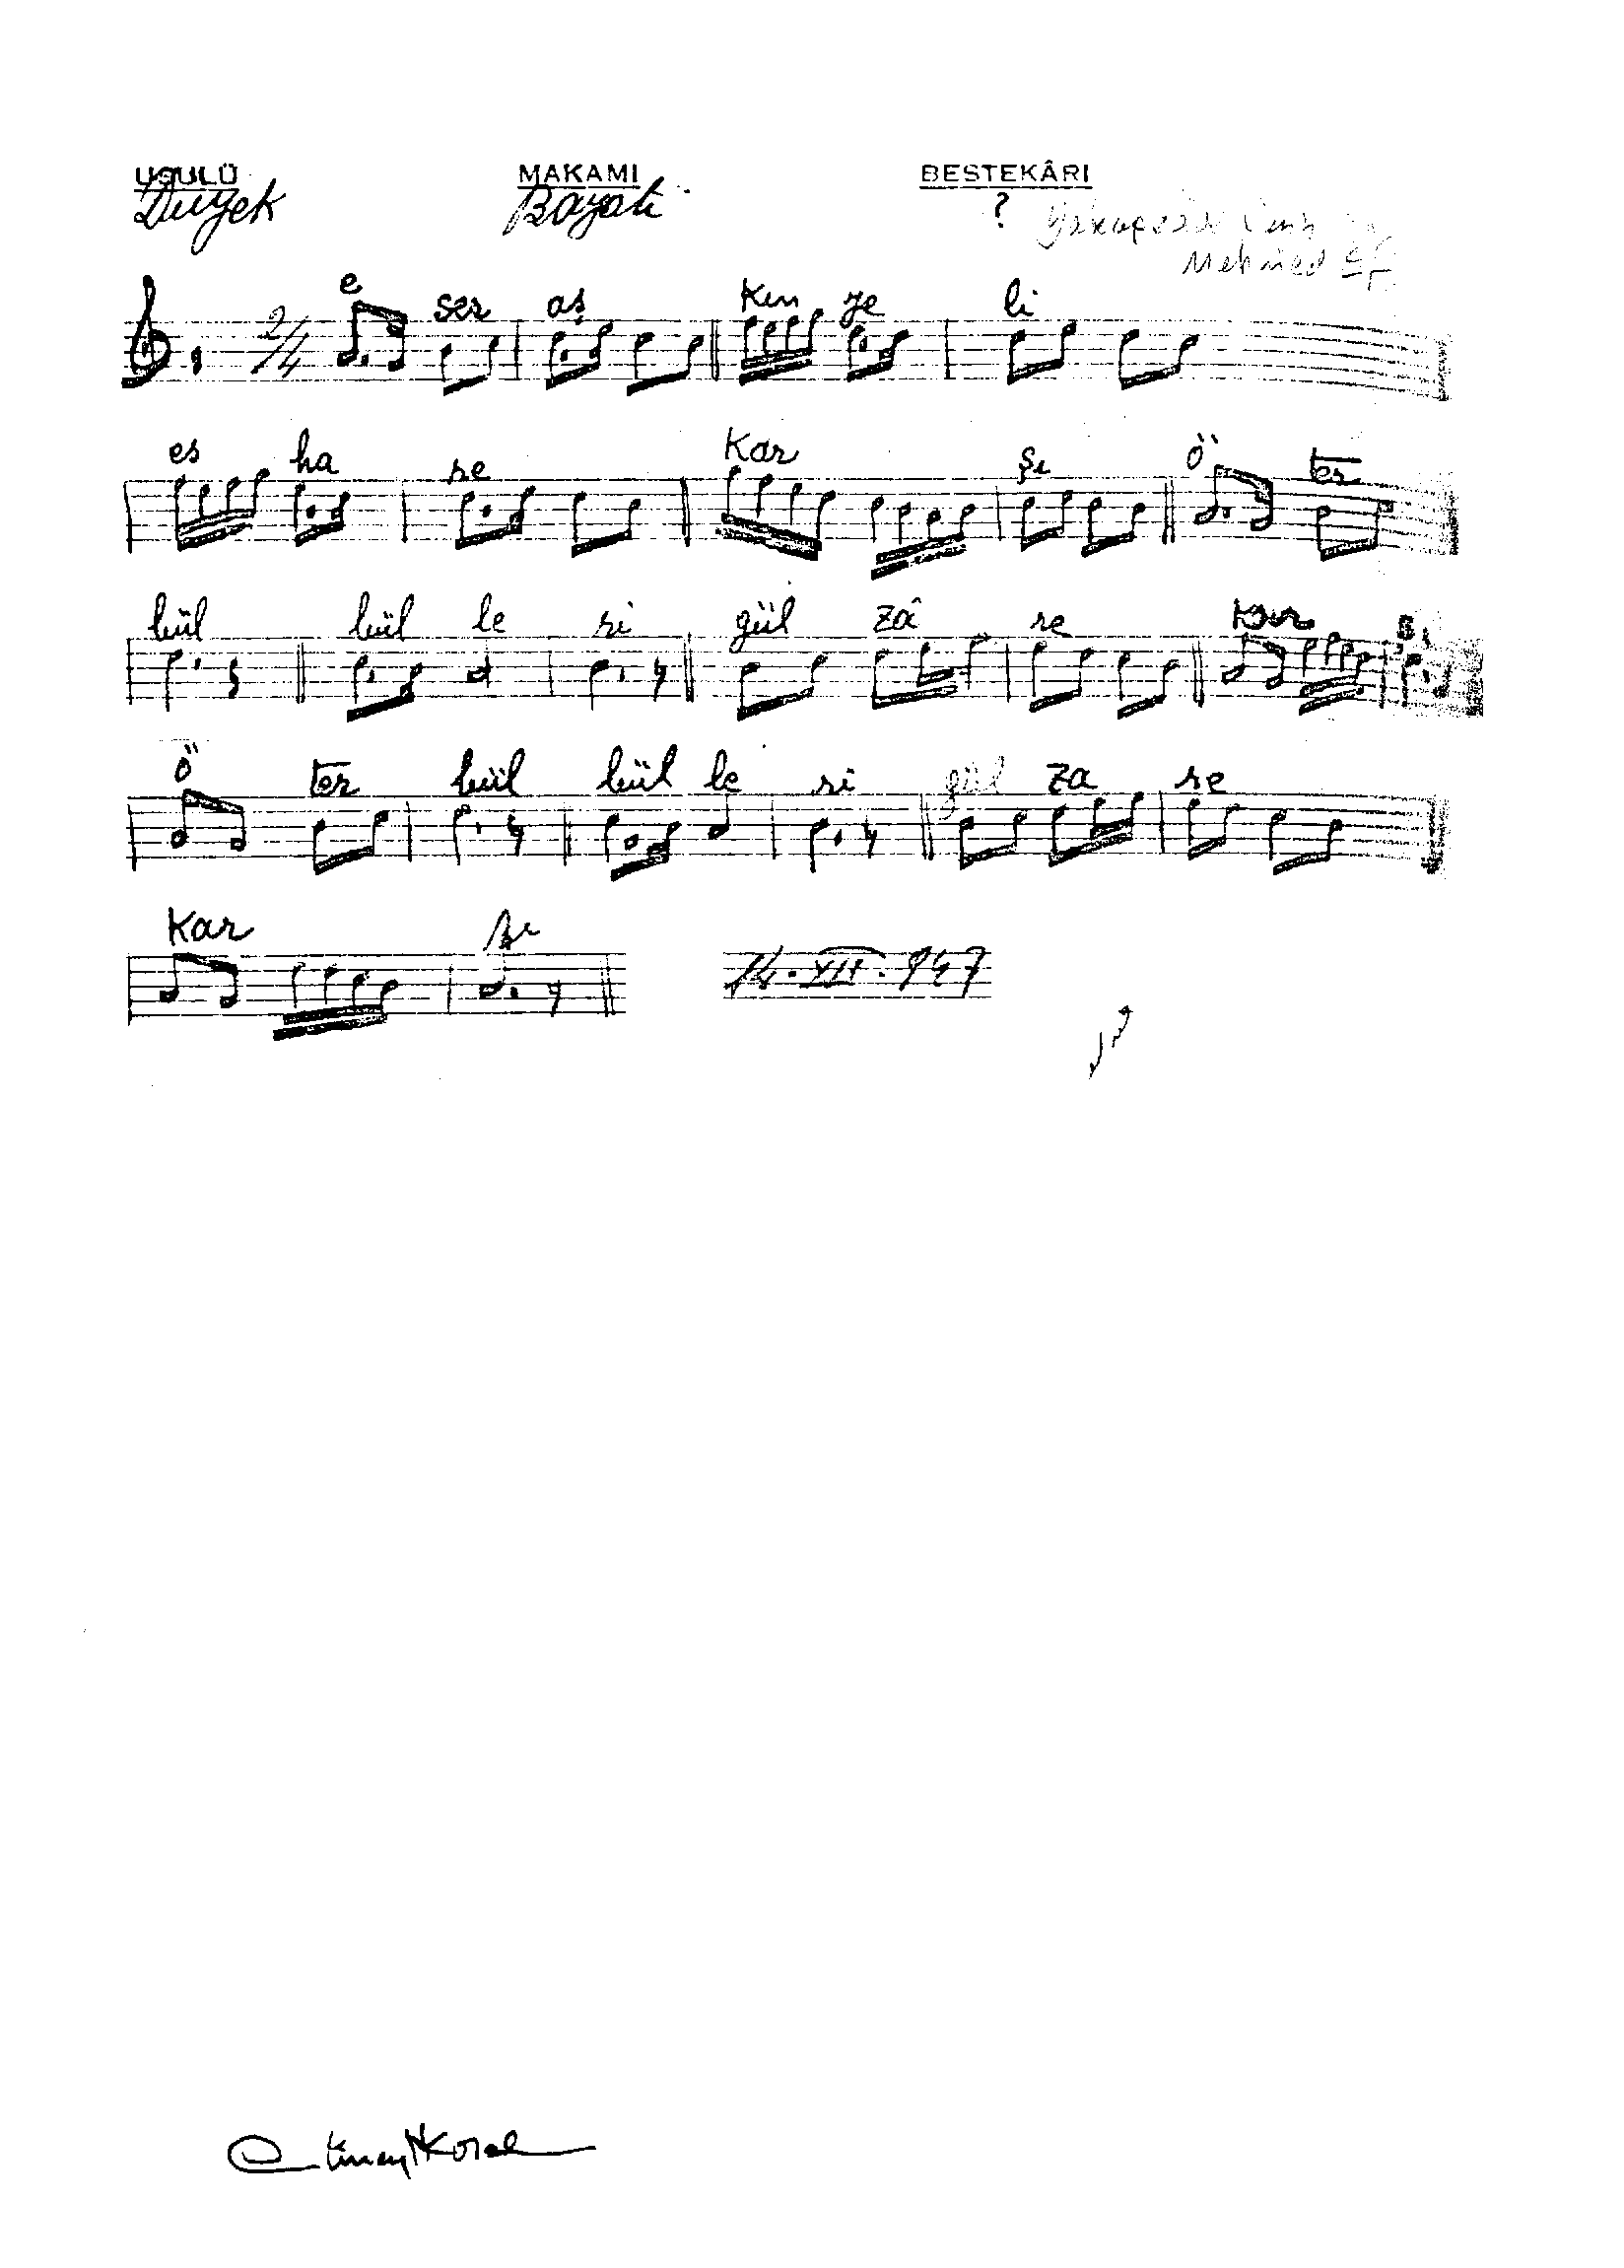 USULÜ MAKAMI BESTEKÂRI
Düyek Bayati ?
Mehmed Ef
2/4 e ser aş kın ye li
es ha re kar şı ö ter
bül bül le ri gül zâ re kar şı
ö ter bül bül le ri gül za re
kar şı 14.XII.947